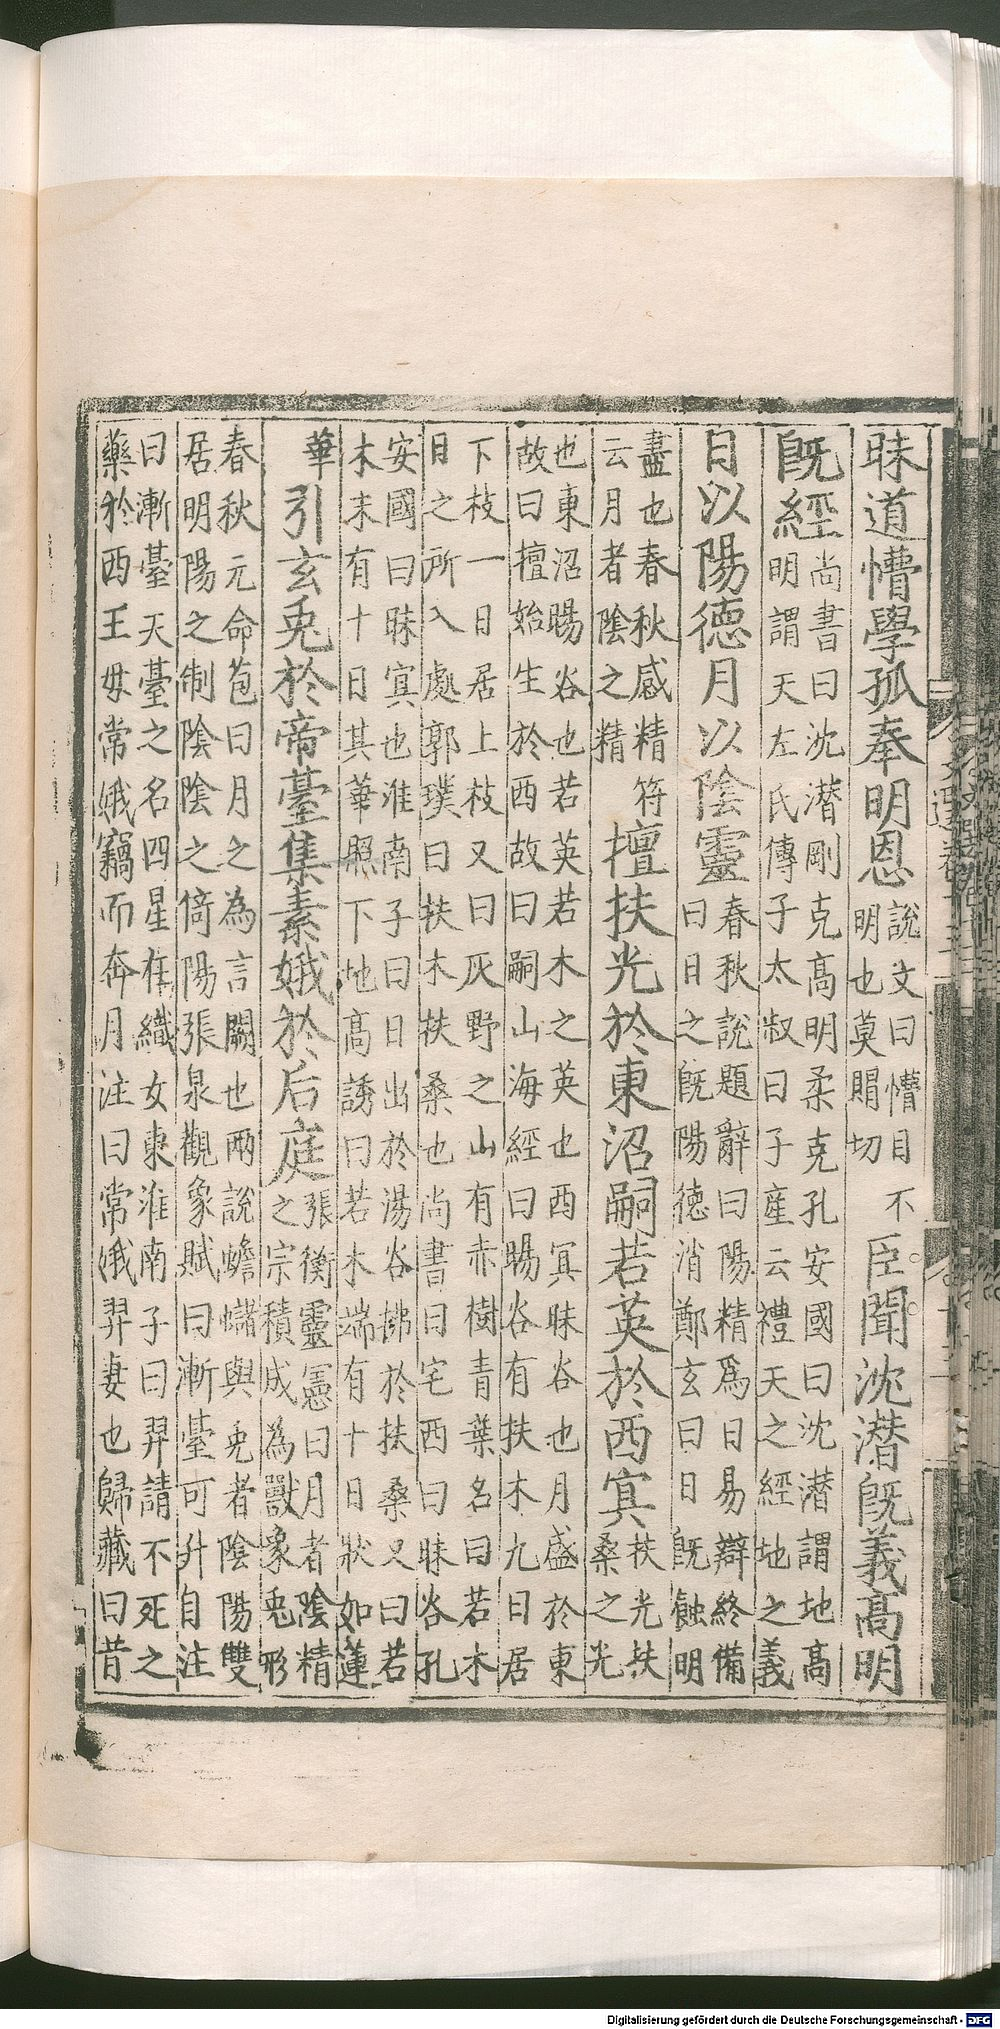 昧道懵學孤奉明恩
說文曰懵目不
明也莫賵切
臣聞沈潛旣義高明
旣經
尚書曰沈潛剛克高明柔克孔安國曰沈潛謂地高
明謂天左氏傳子太叔曰子產云禮天之經地之義
日以陽德月以陰靈
春秋說題辭曰陽精爲日易辯終備
曰日之旣陽德消鄭玄曰日旣蝕明
盡也春秋感精符
云月者陰之精
擅扶光於東沼嗣若英於西冥
扶光扶
桑之光
也東沼暘谷也若英若木之英也西冥昧谷也月盛於東
故曰擅始生於西故曰嗣山海經曰暘谷有扶木九日居
下枝一日居上枝又曰灰野之山有赤樹青葉名曰若木
日之所入處郭璞曰扶木扶桑也尚書曰宅西曰昧谷孔
安國曰昧冥也淮南子曰日出於湯谷拂於扶桑又曰若
木末有十日其華照下地高誘曰若木端有十日狀如蓮
華
引玄兎於帝臺集素娥於后庭
張衡靈憲曰月者陰精
之宗積成為獸象兎形
春秋元命苞曰月之為言闕也兩說蟾蠩與兎者陰陽雙
居明陽之制陰陰之倚陽張泉觀象賦曰漸臺可升自注
曰漸臺天臺之名四星在織女東淮南子曰羿請不死之
藥於西王母常娥竊而奔月注曰常娥羿妻也歸藏曰昔
Digitalisierung gefördert durch die Deutsche Forschungsgemeinschaft - DFG